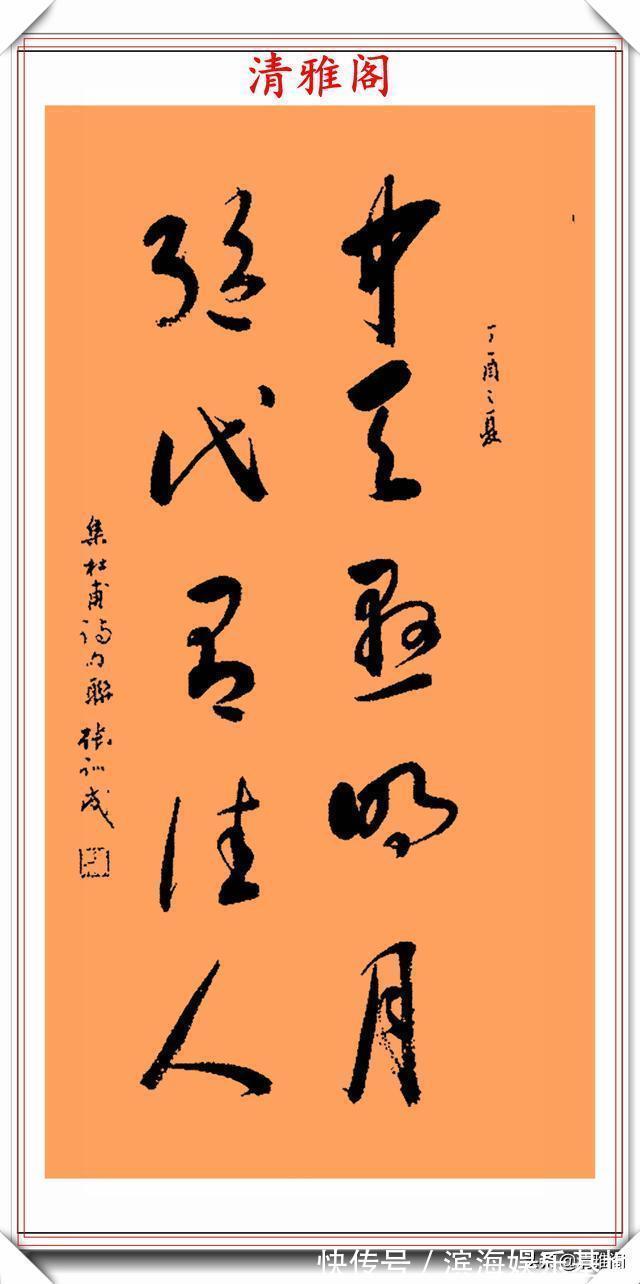 清雅阁
丁酉之夏
中天悬明月
绝代有佳人
集杜甫诗句聯 张训成
快传号 / 滨海娱乐